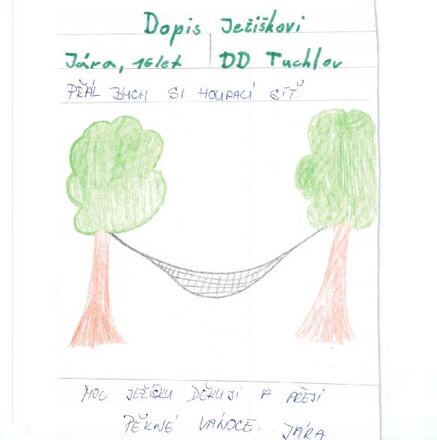 Dopis Ježíškovi
Jára, 16 let DD Tuchlov
PŘÁL BYCH SI HOUPACÍ SÍŤ.
MOC JEŽÍŠKU DĚKUJI A PŘEJI
PĚKNÉ VÁNOCE. JÁRA